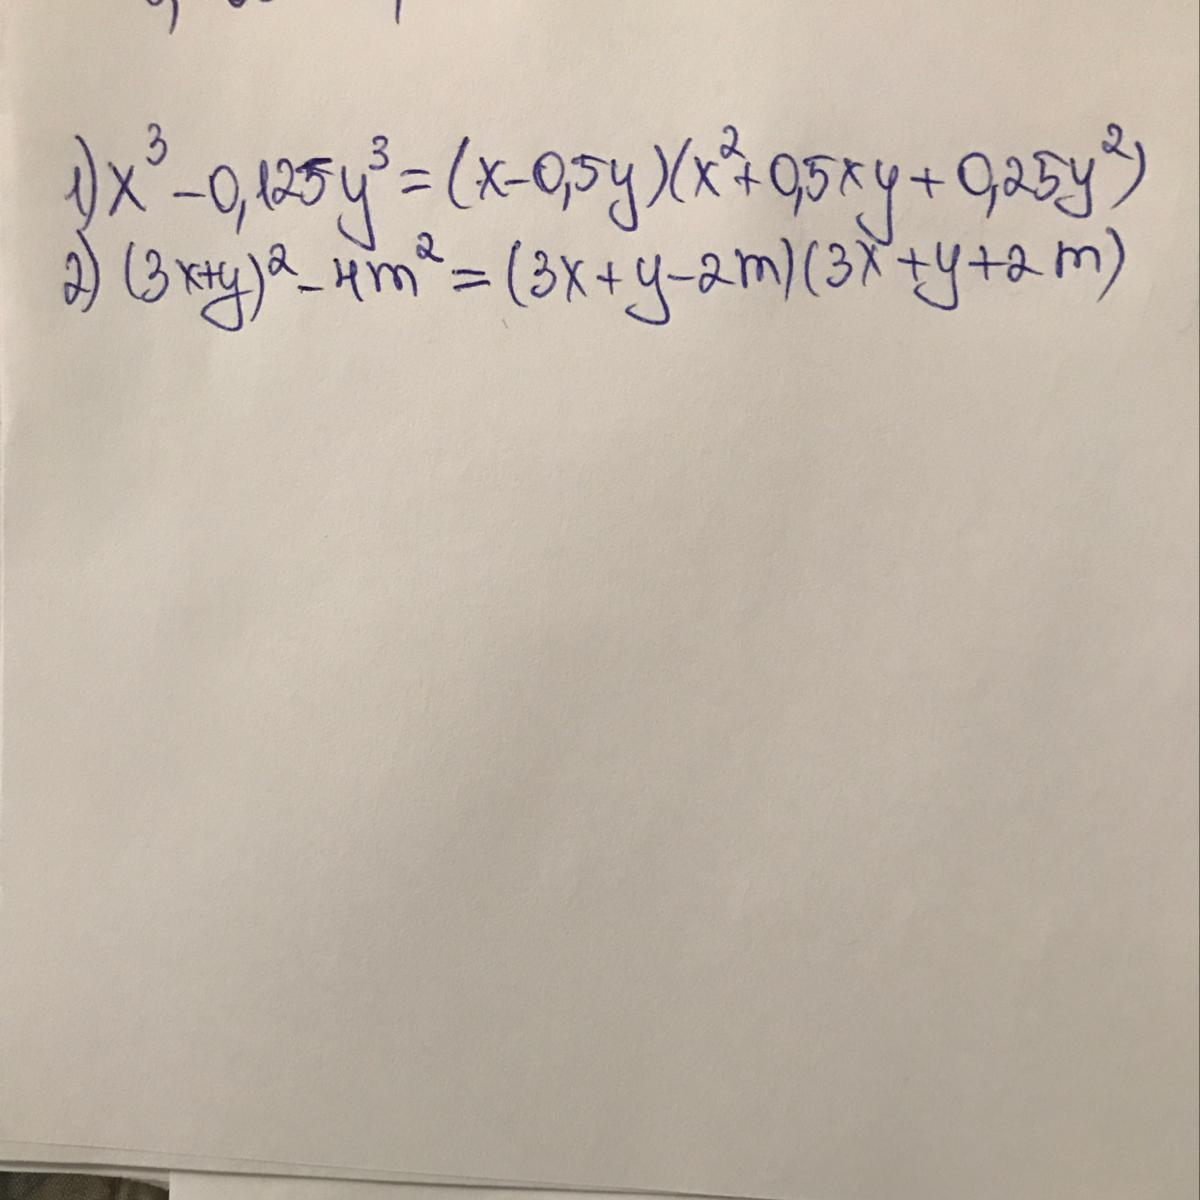 1) x³ - 0,125y³ = (x - 0,5y)(x² + 0,5xy + 0,25y²)
2) (3x+y)² - 4m² = (3x + y - 2m)(3x + y + 2m)